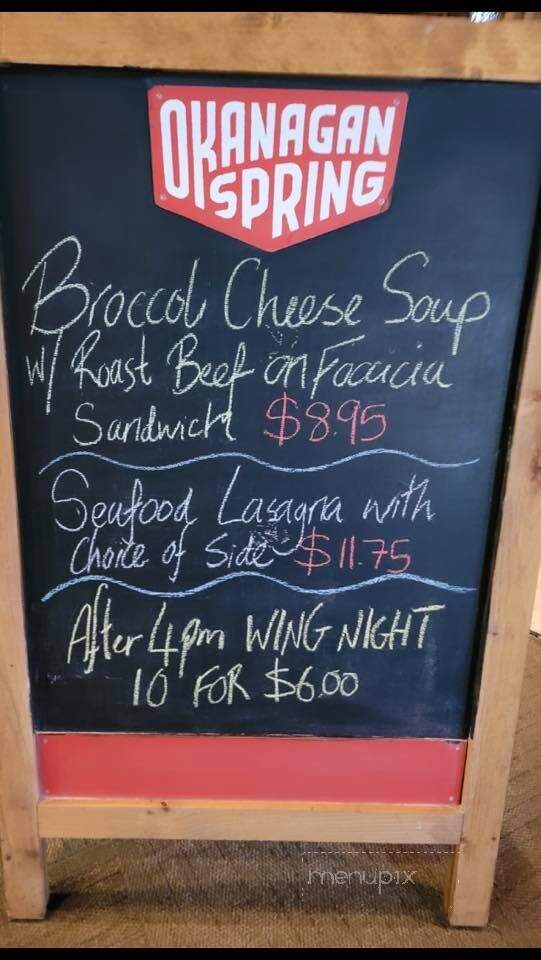 OKANAGAN
SPRING
Broccol Cheese Soup
w/ Roast Beef on Focaccia
Sandwich $8.95
Seafood Lasagna with
Choice of Side $11.75
After 4pm WING NIGHT
10 FOR $6.00
menupix